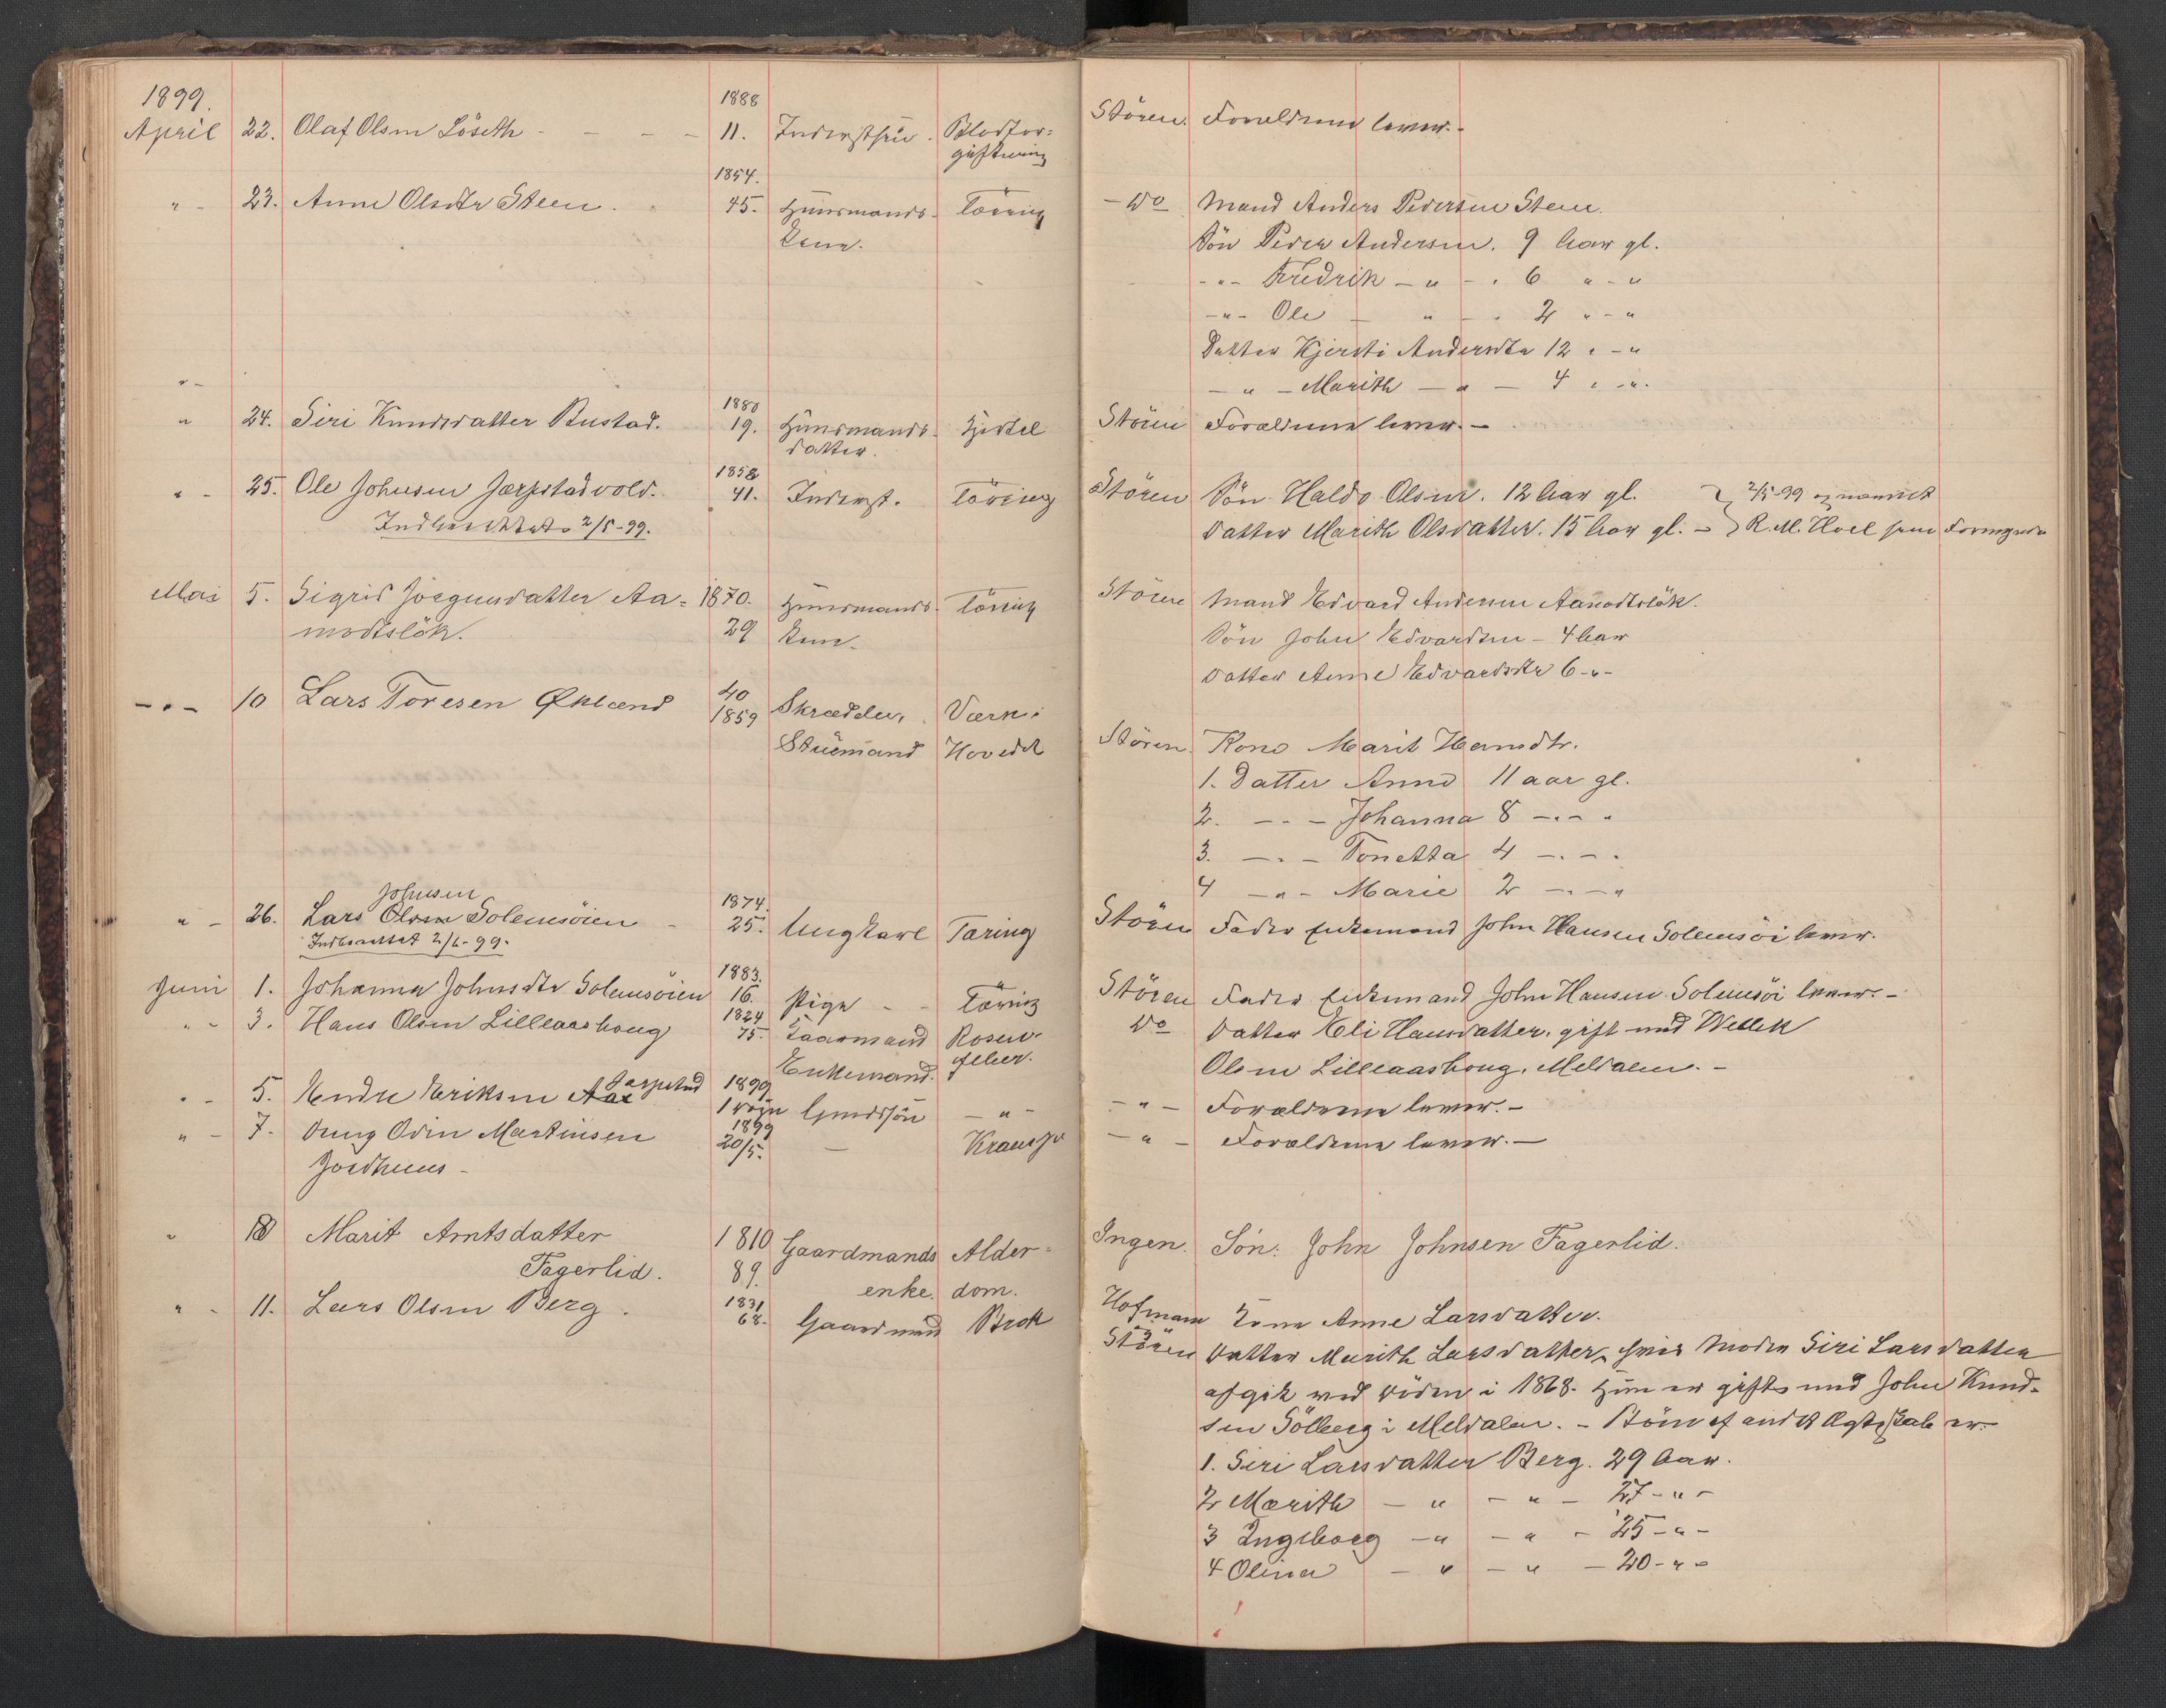 1899.
April 22. Olaf Olsen Löseth - - - 1888 11. Inderstsön. Blodfor=
giftning
" - 23. Anne Olsdtr Steen. 1854. 45. Huusmands- Tæring
kone.
" -
" 24. Siri Knudsdatter Bustad. 1880 19. Huusmands-
datter.
" - 25. Ole Johnsen Jærpstadvold. 1858 41. Inderst. Tæring
Indberettet 2/5-99.
Mai 5. Sigrid Jörgensdatter Aa= 1870. Huusmands- Tæring
modtslök. 29 kone.
- " - 10 Lars Toresen Økland 40 1859 Skrædder, Værk i
Stuemand Hovedet
" - 26. Lars Olsen Johnsen Solemsöien - 1874. 25. Ungkarl Tæring
Indberettet 2/6-99.
Juni 1. Johanna Johnsdtr Solemsöien 1883. 16. Pige - - Tæring
" - 3. Hans Olsen Lilleaashoug 1824 75. Gaardmand Rosen-
Enkemand. feber.
" - 5. Endre Eriksen Aae Jarpstad 1899 1 Gaardsön - " -
" - 7. Odin Martinsen 1899 20/5. - Krampe
Jordhuus -
" 10 Marit Arntsdatter 1810 Gaardmands Alder=
Fagerlid. 89. enke. dom.
" - 11. Lars Olsen Berg. 1831 68. Gaardmand Brok
Stören. Forældrene lever. -
- Do Mand Anders Pedersen Steen.
Sön Peder Andersen. 9 Aar gl.
- " - Fredrik - " - . 6 " - "
- " - Ole - " - . 2 " - "
Datter Kjersti Andersdtr 12 " - "
- " - Marith - " - 4 " - ".
Stören Forældrene lever. -
Stören Sön Haldo Olsen. 12 Aar gl. 2/5-99 opnævnt
Datter Marith Olsdatter. 15 Aar gl. - R. M. Hoel som Formynder
Stören Mand Edvard Andersen Aamodtslök.
Sön John Edvardsen - 4 Aar
Datter Anne Edvardsdtr 6 - " -
Stören. Kone Marit Hansdtr.
1. Datter Anne 11 aar gl.
2. - - - Johanna 8 - " - "
3. - " - Tonetta 4 - " - "
4 - " - Marie 2 - " - "
Stören Fader Enkemand John Hansen Solemsöi lever.
Stören Fader Enkemand John Hansen Solemsöi lever. -
Do Datter Eli Hansdatter, gift med
Olsen Lilleaashoug, Meldalen. -
- " - Forældrene lever. -
- " - Forældrene lever. -
Ingen. Sön: John Johnsen Fagerlid.
Hofmann Kone Anne Larsdatter.
Stören Datter Marith Larsdatter, hvis Moder Siri Larsdatter
afgik ved Döden i 1868. Hun er gift med John Knud-
sen Sölberg i Meldalen. - Börn af andet Ægteskab er.
1. Siri Larsdatter Berg. 29 Aar.
2 Marith - " - " - 27 - " -
3 Ingeborg - " - " - 25 - " -
4 Olina - " - " - 20 - " -